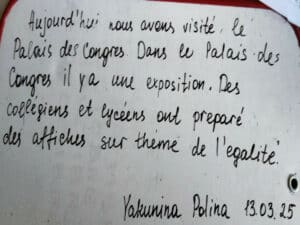 Aujourd'hui nous avons visité le
Palais des Congres Dans le Palais des
Congres il y a une exposition. Des
collégiens et lycéens ont preparé
des affiches sur thème de l'egalité.
Yakunina Polina 13.03.25